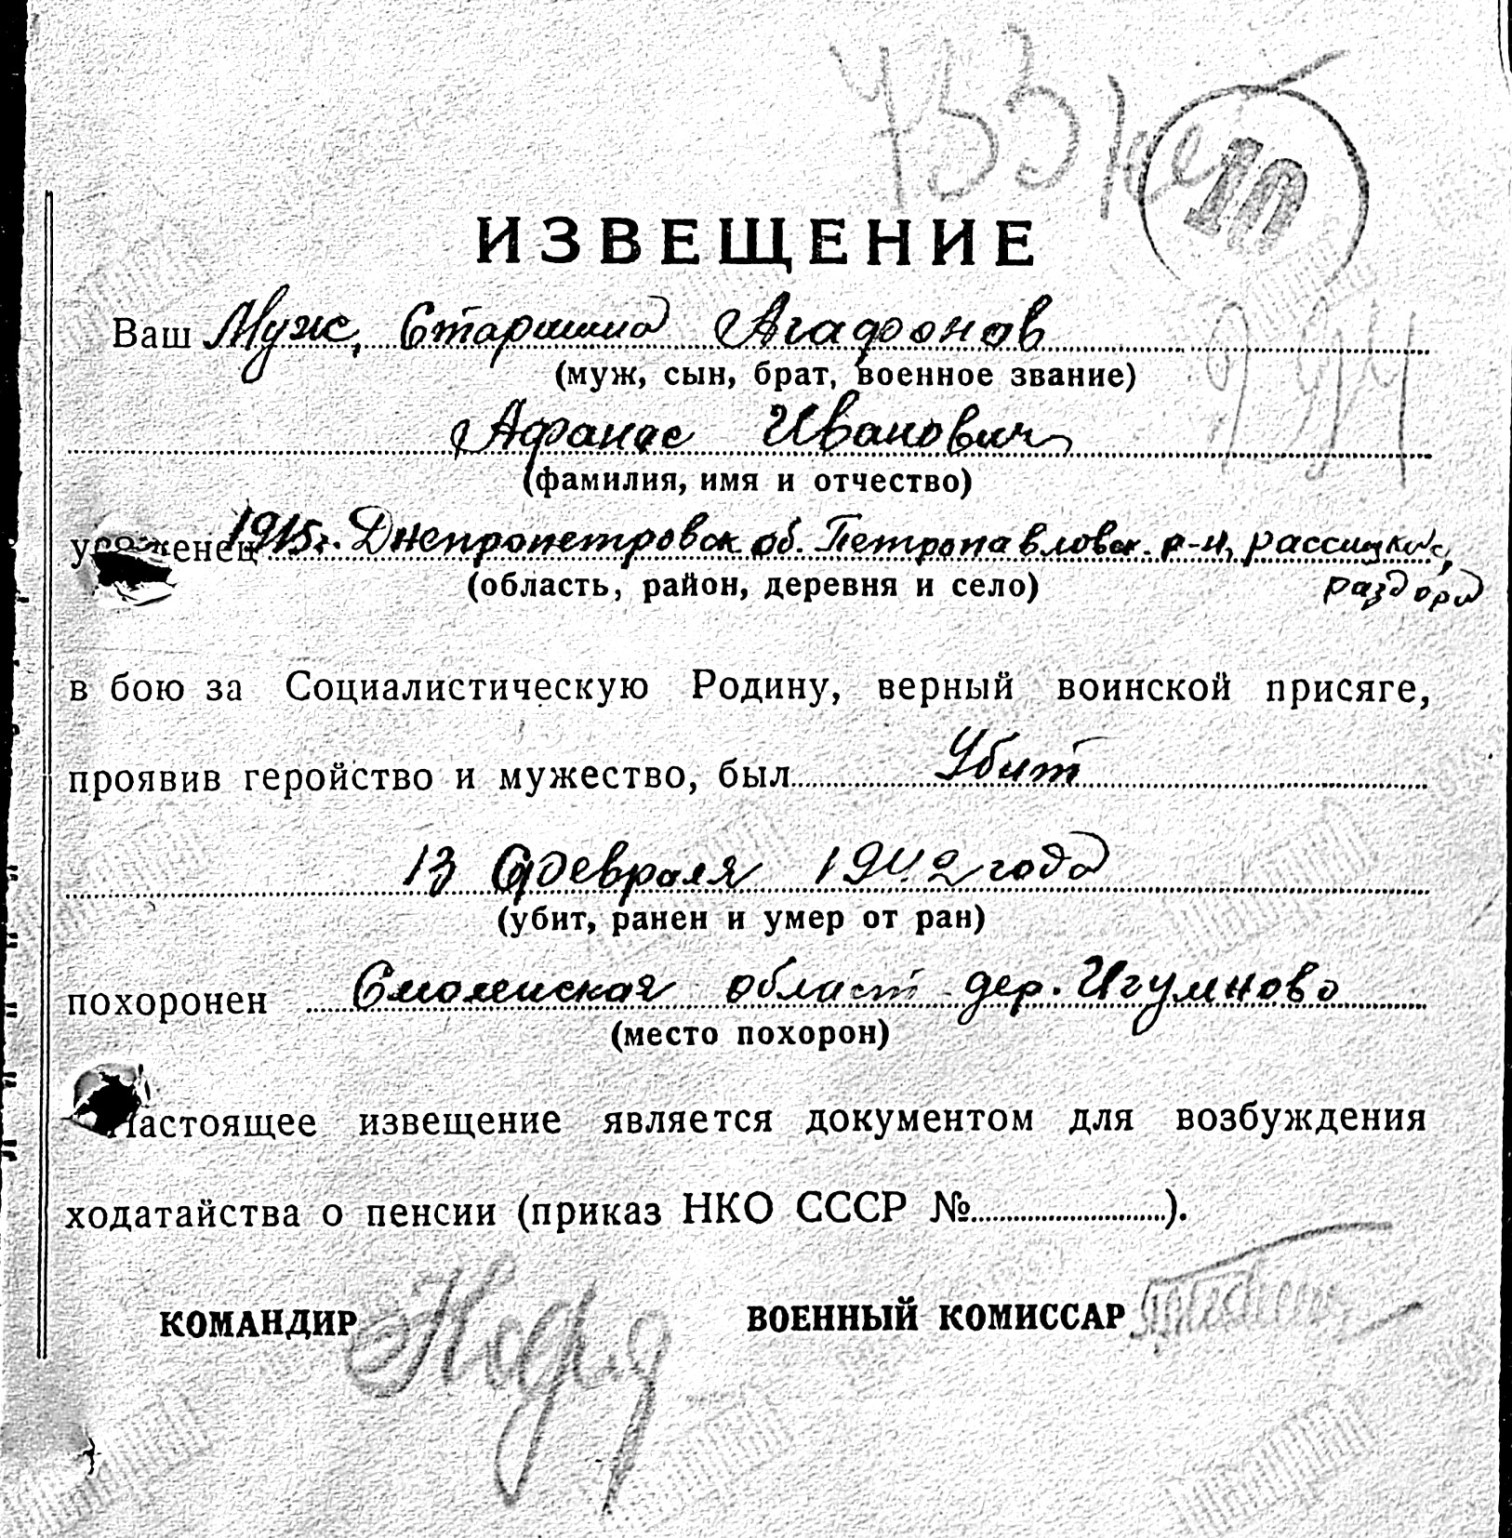 433
10
ИЗВЕЩЕНИЕ
Ваш Муж, Старшина Агафонов
(муж, сын, брат, военное звание)
Афанас Иванович
(фамилия, имя и отчество)
уроженец 1915г. Днепропетровск об. Петропавловск. р-н,
(область, район, деревня и село)
раздоры
в бою за Социалистическую Родину, верный воинской присяге,
проявив геройство и мужество, был Убит
13 Февраля 1942 года
(убит, ранен и умер от ран)
похоронен Смоленская област дер. Игумново
(место похорон)
Настоящее извещение является документом для возбуждения
ходатайства о пенсии (приказ НКО СССР № ).
КОМАНДИР ВОЕННЫЙ КОМИССАР